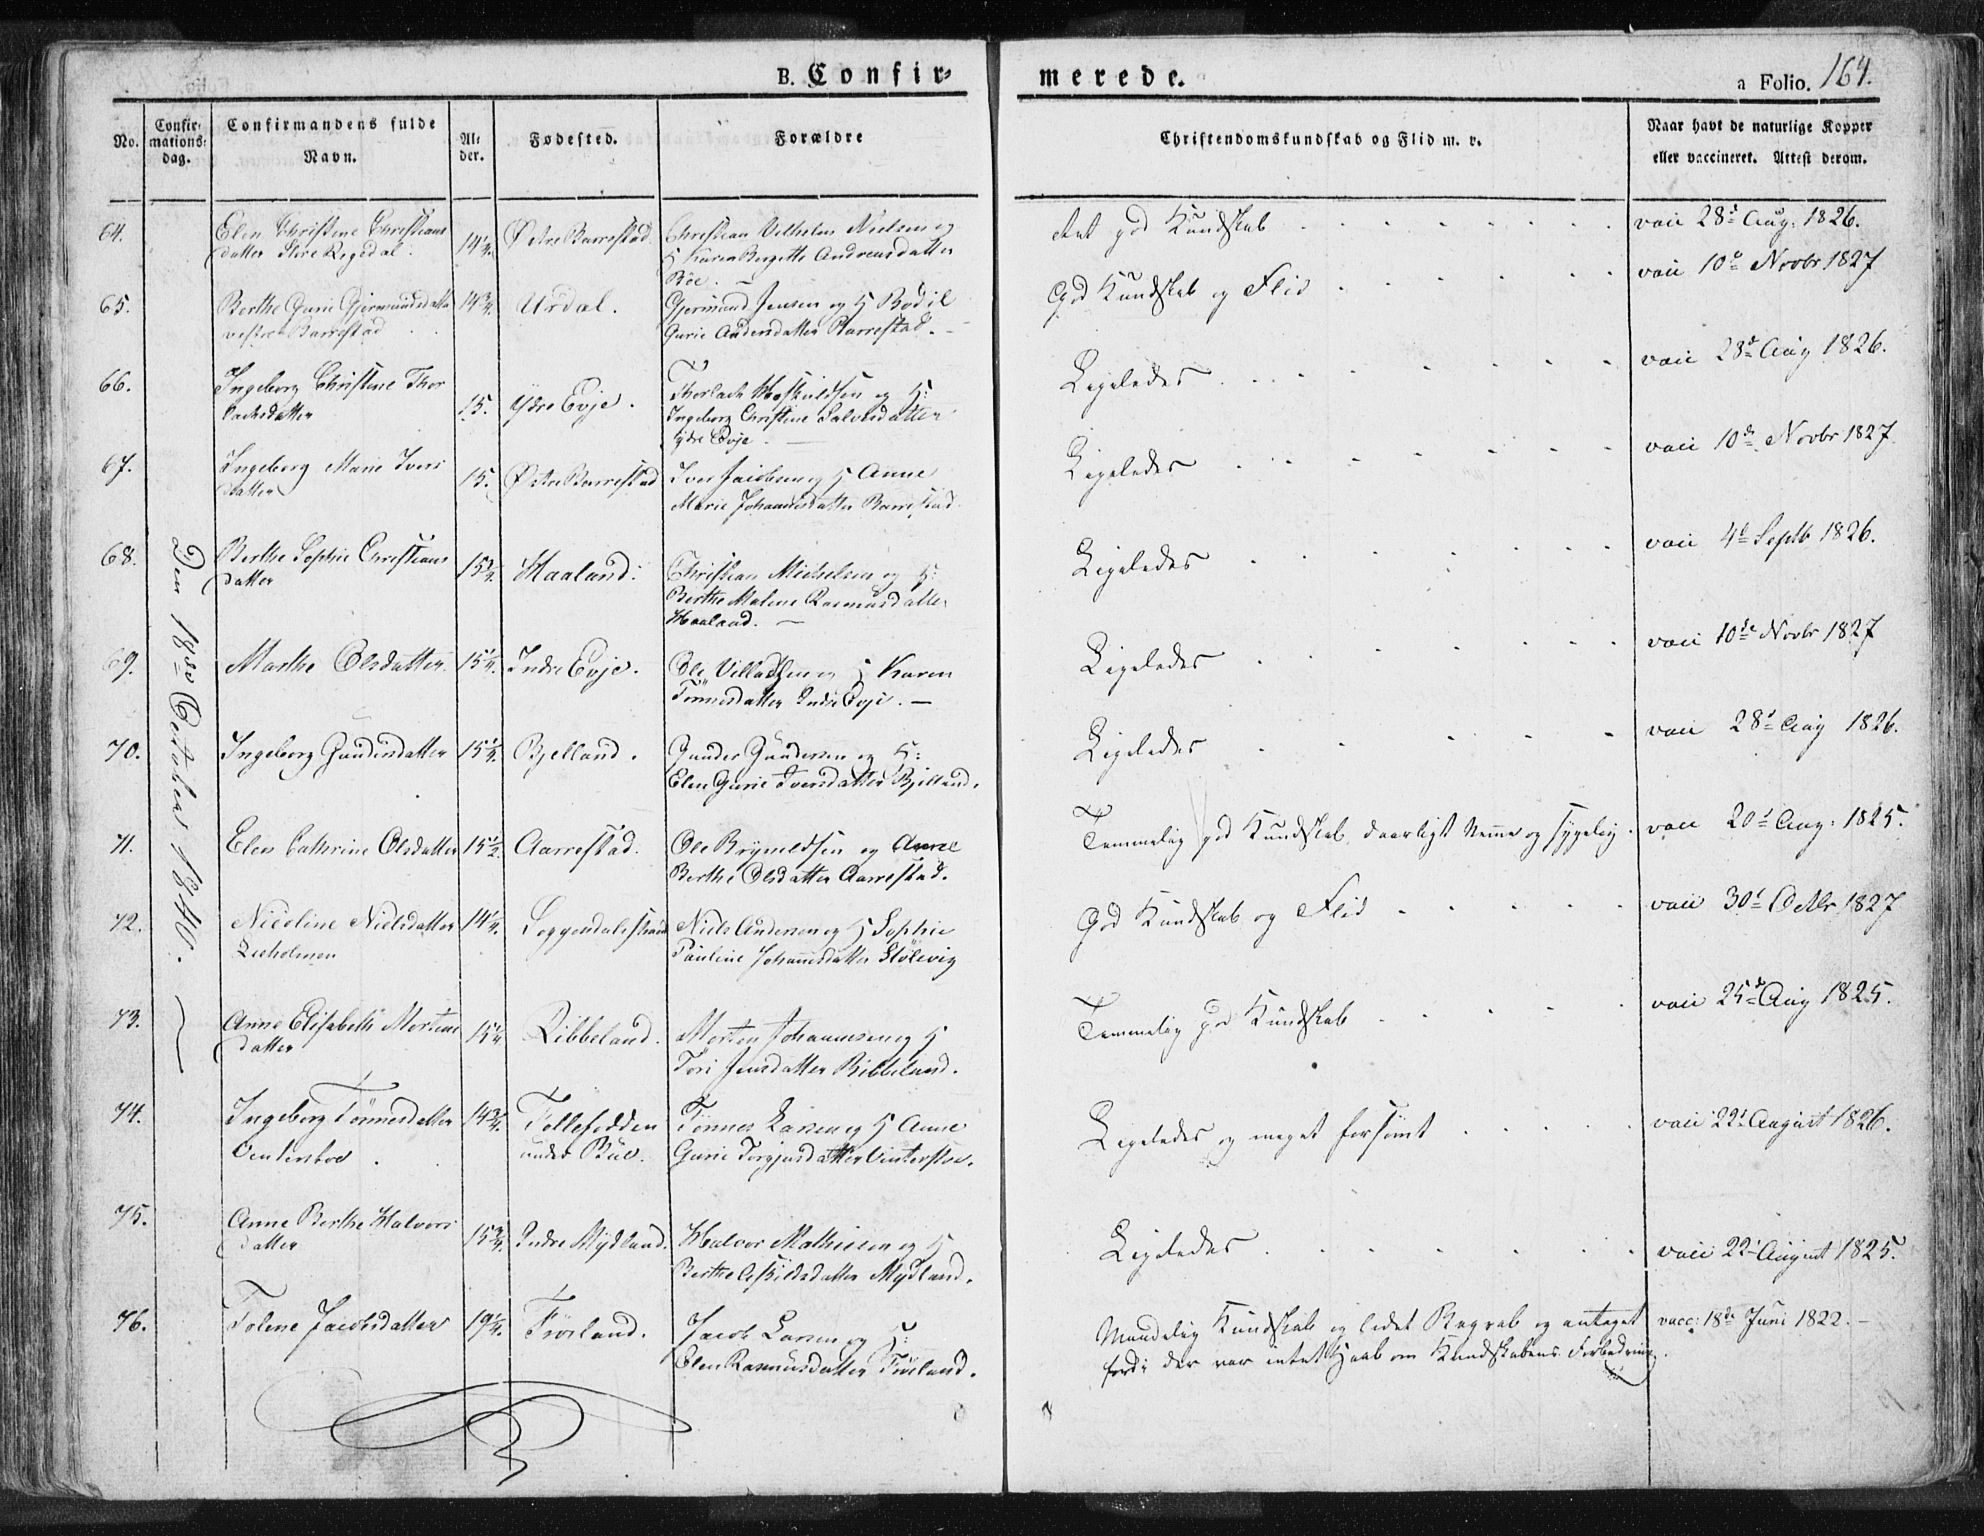 B. Confir-
merede.
a Folio. 164.
No.
Confir-
mations-
dag.
Confirmandens fulde
Navn.
Al-
der.
Fødested.
Forældre
Christendomskundskab og Flid m. v.
Naar havt de naturlige Kopper
eller vaccineret. Attest derom.
Den 18de October 1840.
64. Elen Christine Christians
datter Store 14 1/4. Østre Barrestad. Christian Vilhelm Nielsen og
H Karen Bergitte Andreasdatter
god Kundskab vacc 28d Aug: 1826.
65. Berthe Gurie Gjermundsdatter
vestre Barrestad 14 3/4. Urdal. Gjermund Jensen og H Bodil
Gurie Andersdatter Barrestad.
God Kundskab og Flid vacc 10d Novbr 1827
66. Ingeborg Christine Thor
lachsdatter 15. Ydre Evje. Thorlach og H:
Ingeborg Christine Salvesdatter
ydre Evje.
Ligeledes vacc 28d Aug 1826.
67. Ingeborg Marie Ivers
datter 15. Østre Barrestad Iver Jacobsen og H Anne
Marie Johannesdatter Barrestad.
Ligeledes vacc 10de Novbr 1827.
68. Berthe Sophie Christians
datter Haaland. Christian Michelsen og H:
Berthe Malene Rasmusdatter
Haaland.
Ligeledes vacc 4d Septb 1826.
69. Marthe Olsdatter 15 1/4. Indre Evje. Ole Villadsen og H Karen
Tönnesdatter Indre Evje.
Ligeledes vacc 10de Novbr 1827
70. Ingeborg Gundersdatter 15 1/4. Bjelland. Gunder Gundersen og H:
Elen Gurie Iversdatter Bjelland.
Ligeledes vacc 28d Aug 1826.
71. Elen Cathrine Olsdatter 15 1/2. Aarrestad. Ole Brynildsen og Anne
Berthe Olsdatter Aarrestad.
Temmelig god Kundskab, daarligt Nemme og sygelig. vacc 20d Aug: 1825.
72. Nicoline Nielsdatter
14 1/4. Soggendalsstrand Niels Andersen og H Sophie
Pauline Johannesdatter Stölevig
God Kundskab og Flid vacc 30d Octbr 1827
73. Anne Elisabeth Mortens
datter 15 1/4 Ribbeland. Morten Johannesen og H
Tori Jensdatter Ribbeland.
Temmelig god Kundskab vacc 25d Aug 1825.
74. Ingeborg Tönnesdatter
14 3/4. under Bue. Tönnes Larsen og H Anne
Gurie Torgjusdatter Vinterstoe.
Ligeledes og meget forsömt vacc 22d August 1826.
75. Anne Berthe Halvors
datter 15 3/4. Indre Mydland. Halvor Mathiesen og H
Berthe Eskildsdatter Mydland.
Ligeledes vacc 22d August 1825.
76. Tolene Jacobsdatter 19 1/4. Fröiland. Jacob Larsen og H:
Elen Rasmusdatter Fröiland.
Maadelig Kundskab og lidet Begreb og antaget
fordi der var intet Haab om Kundskabens Forbedring.
vacc: 18de Juni 1822.